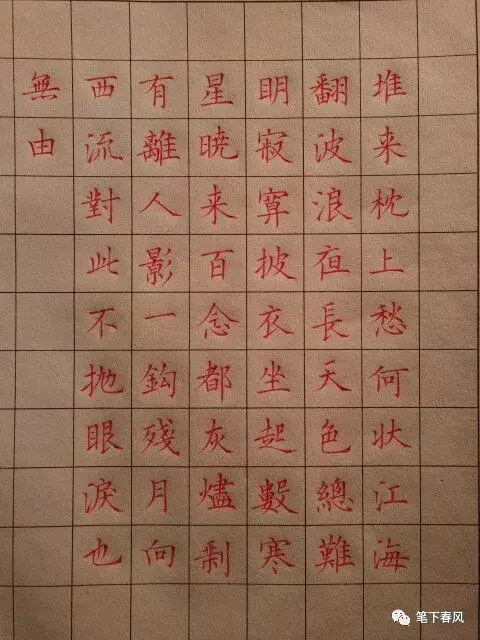 堆来枕上愁何状江海
翻波浪夜長天色總難
明寂寞披衣坐起數寒
星曉来百念都灰燼剩
有離人影一鈎殘月向
西流對此不抛眼淚也
無由
笔下春风